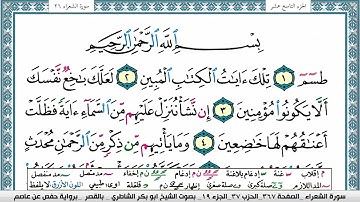 الجزء التاسع عشر
سورة الشعراء ٢٦
بِسْمِ اللَّهِ الرَّحْمَٰنِ الرَّحِيمِ
طسٓمٓ ١ تِلْكَ ءَايَٰتُ الْكِتَٰبِ الْمُبِينِ ٢ لَعَلَّكَ بَٰخِعٌ نَّفْسَكَ
أَلَّا يَكُونُوا مُؤْمِنِينَ ٣ إِن نَّشَأْ نُنَزِّلْ عَلَيْهِم مِّنَ السَّمَآءِ ءَايَةً فَظَلَّتْ
أَعْنَٰقُهُمْ لَهَا خَٰضِعِينَ ٤ وَمَا يَأْتِيهِم مِّن ذِكْرٍ مِّنَ الرَّحْمَٰنِ مُحْدَثٍ
سورة الشعراء الصفحة ٣٦٧ الحزب ٣٧ الجزء ١٩ بصوت الشيخ ابو بكر الشاطري بالقصر برواية حفص عن عاصم